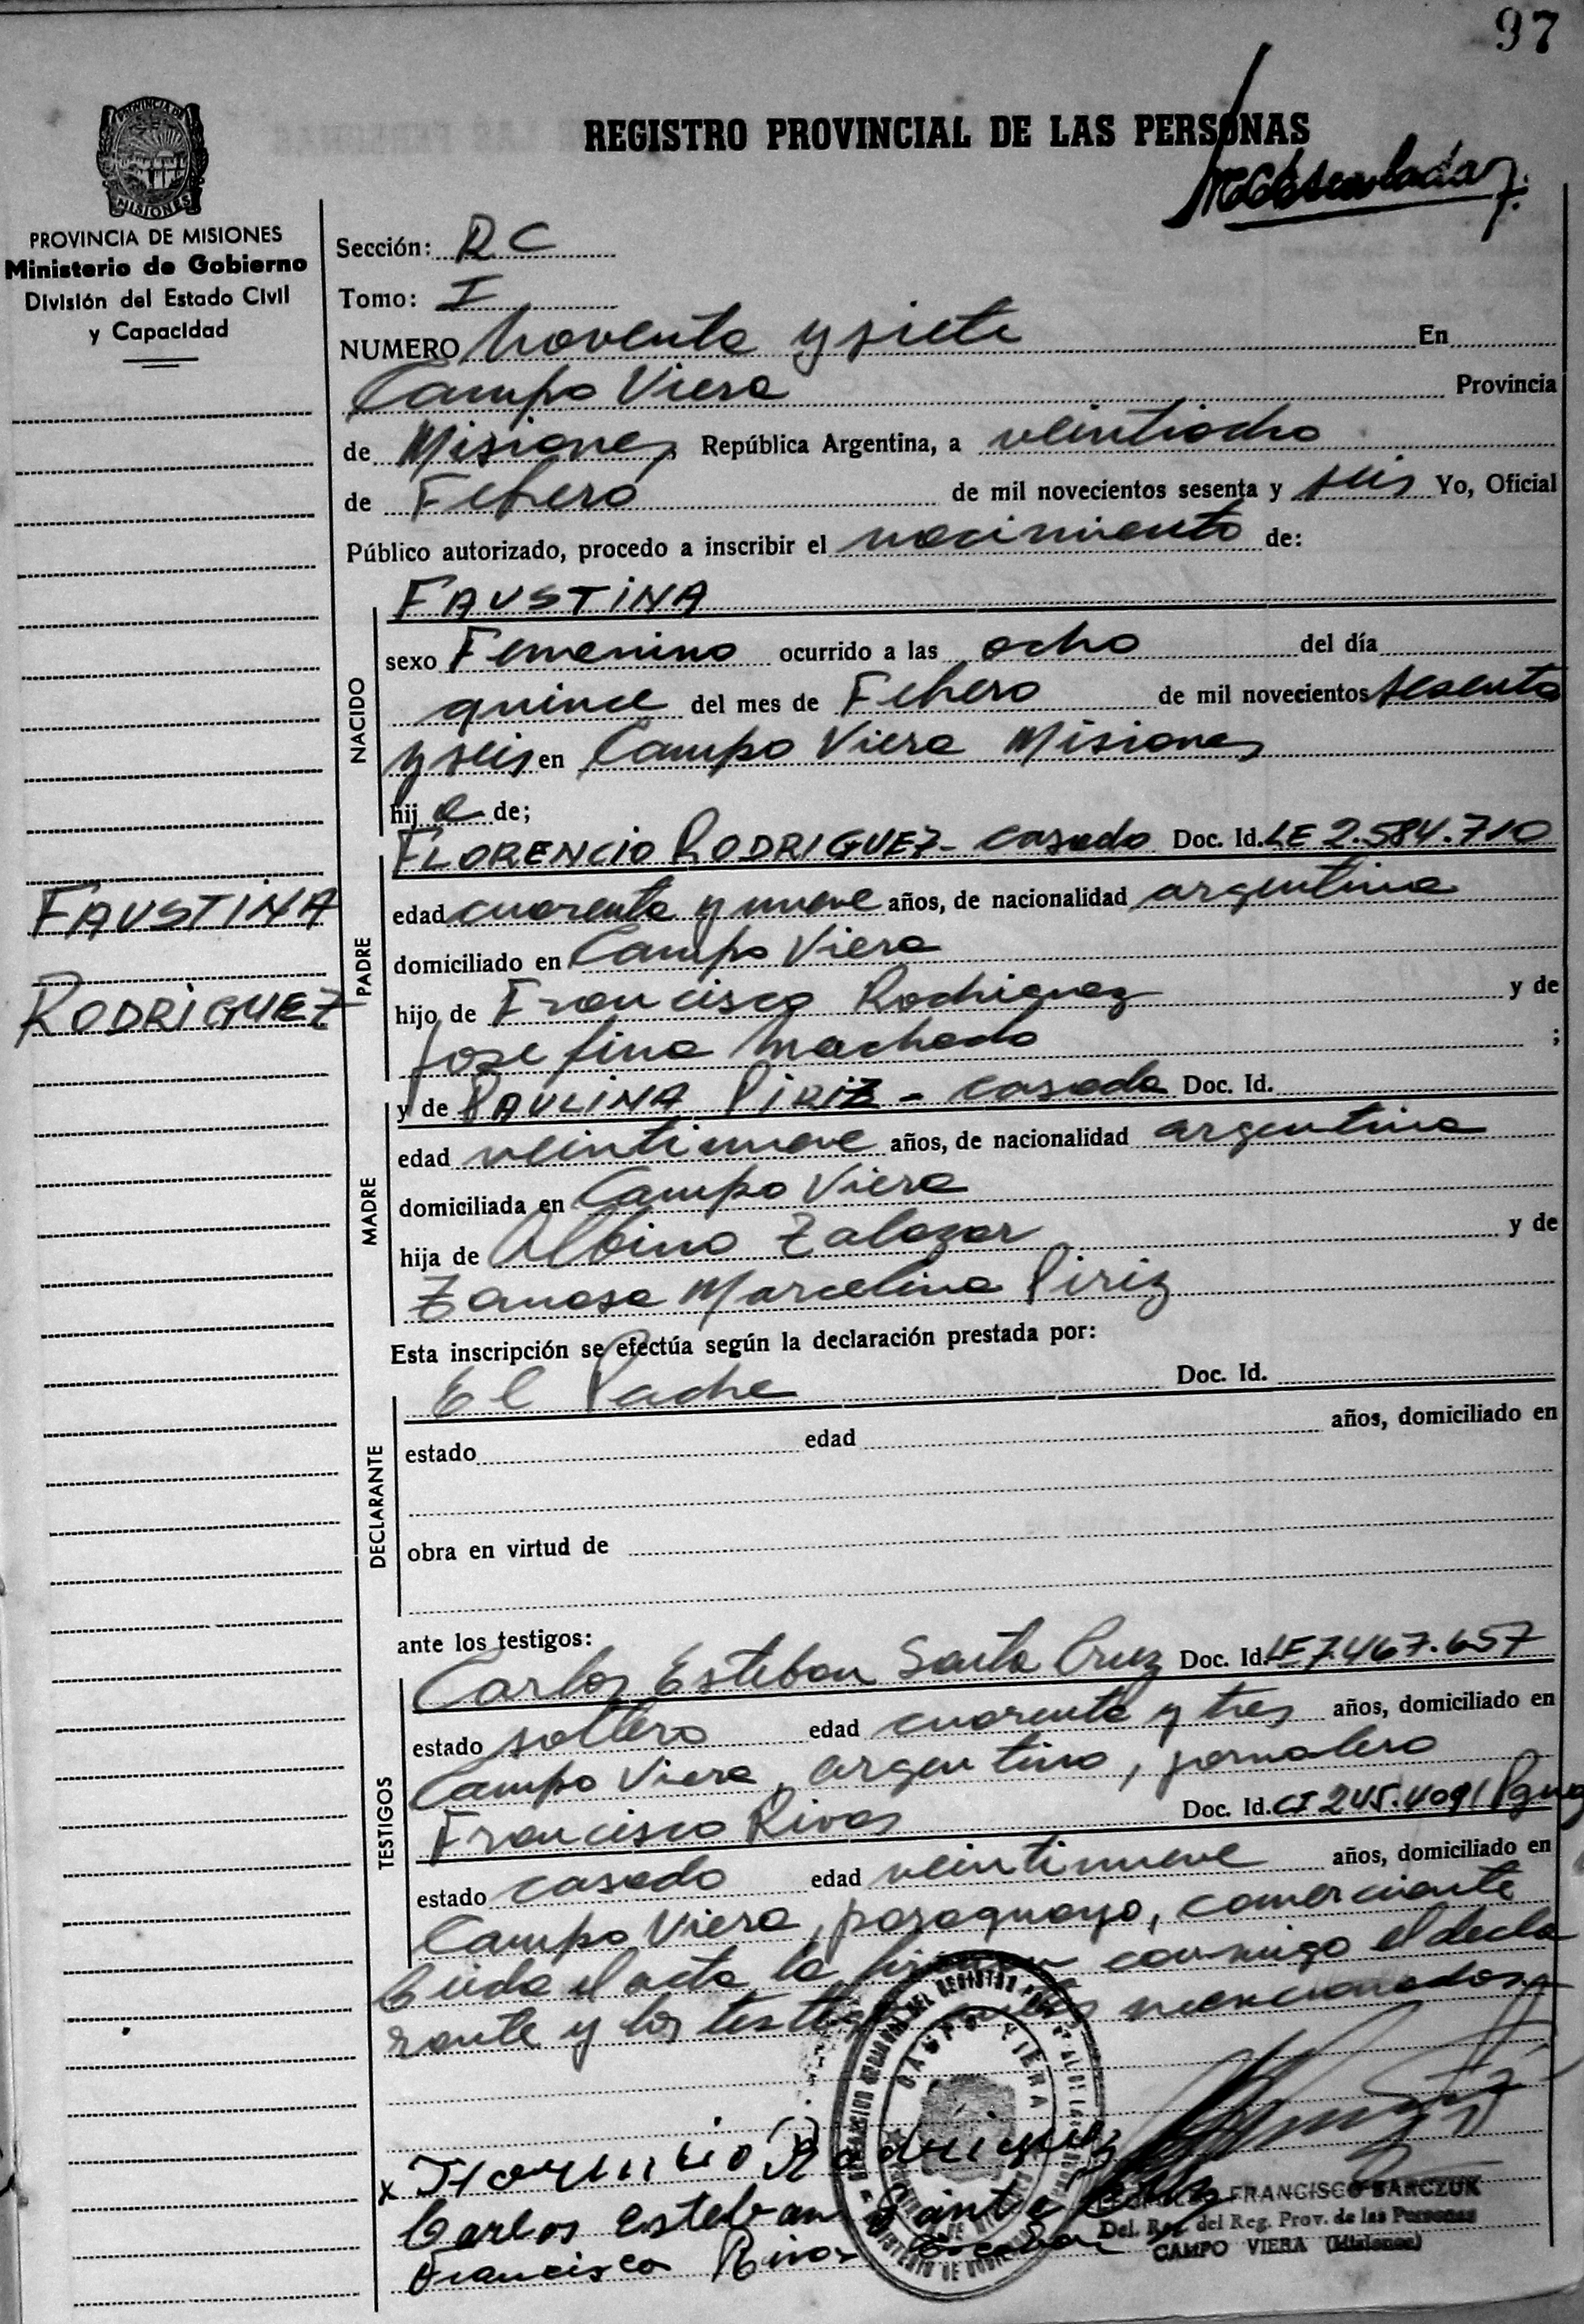 97
PROVINCIA DE
MISIONES
REGISTRO PROVINCIAL DE LAS PERSONAS
PROVINCIA DE MISIONES
Ministerio de Gobierno
División del Estado Civil
y Capacidad
Sección: RC
Tomo: I
NUMERO Noventa y siete En
Campo Viera Provincia
de Misiones República Argentina, a veintiocho
de Febrero de mil novecientos sesenta y seis Yo, Oficial
Público autorizado, procedo a inscribir el nacimiento de:
FAUSTINA
NACIDO
sexo Femenino ocurrido a las ocho del día
quince del mes de Febrero de mil novecientos sesenta
y seis en Campo Viera Misiones
hij a de;
FLORENCIO RODRIGUEZ - casado Doc. Id. LE 2.584.710
PADRE
edad cuarenta y nueve años, de nacionalidad argentina
domiciliado en Campo Viera
hijo de Francisco Rodriguez y de
Josefina Machado ;
FAUSTINA
RODRIGUEZ
y de PAULINA PIRIZ - casada Doc. Id.
MADRE
edad veintinueve años, de nacionalidad argentina
domiciliada en Campo Viera
hija de Albino Zalazar y de
Marcelina Piriz
Esta inscripción se efectúa según la declaración prestada por:
El Padre Doc. Id.
DECLARANTE
estado edad años, domiciliado en
obra en virtud de
ante los testigos:
Carlos Esteban Santa Cruz Doc. Id. LE 7.467.657
TESTIGOS
estado soltero edad cuarenta y tres años, domiciliado en
Campo Viera, argentino, jornalero
Francisco Rivas Doc. Id. CI 245.409
estado casado edad veintinueve años, domiciliado en
Campo Viera, paraguayo, comerciante
Leida el acta la firman conmigo el decla
rante y los testigos mencionados.
CAMPO VIERA
x Florencio Rodriguez
Carlos Esteban Santa Cruz
Francisco Rivas
FRANCISCO BARCZUK
Del. Reg. del Reg. Prov. de las Personas
CAMPO VIERA (Misiones)